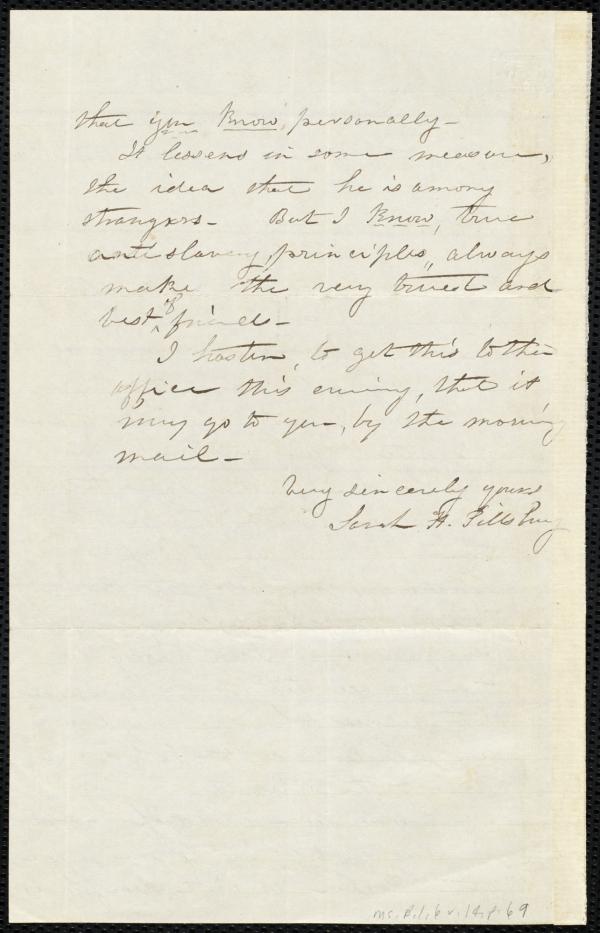 that you know, personally-
It lessens in some measure,
the idea that he is among
strangers- But I know, true
anti slavery, principles, always
make the very truest and
best of friends-
I hasten, to get this to the
office this evening, that it
may go to you, by the morning
mail-
Very sincerely yours
Sarah H. Pillsbury
Ms. A.1.6 v.14, p. 69